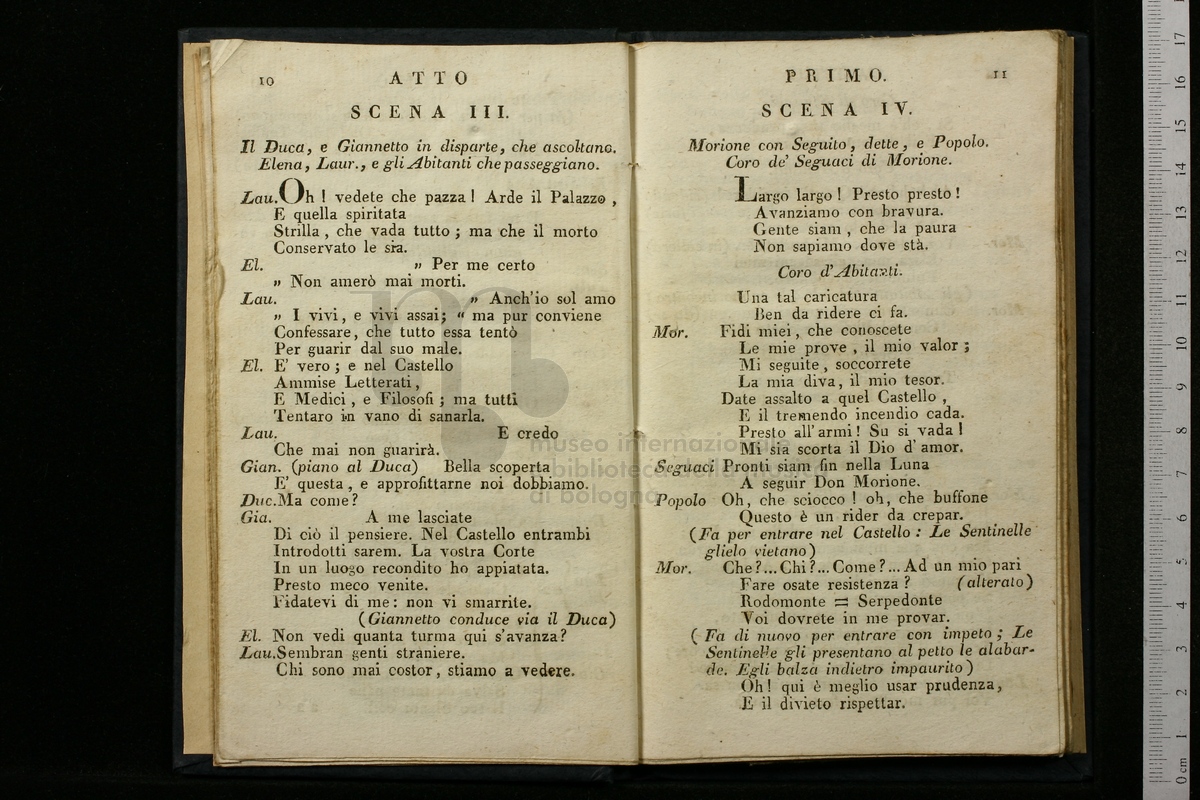 10
ATTO
SCENA III.
Il Duca, e Giannetto in disparte, che ascoltano.
Elena, Laur., e gli Abitanti che passeggiano.
Lau. Oh! vedete che pazza! Arde il Palazzo,
E quella spiritata
Strilla, che vada tutto; ma che il morto
Conservato le sia.
El. „ Per me certo
„ Non amerò mai morti.
Lau. „ Anch'io sol amo
„ I vivi, e vivi assai; “ ma pur conviene
Confessare, che tutto essa tentò
Per guarir dal suo male.
El. E' vero; e nel Castello
Ammise Letterati,
E Medici, e Filosofi; ma tutti
Tentaro in vano di sanarla.
Lau. E credo
Che mai non guarirà.
Gian. (piano al Duca) Bella scoperta
E' questa, e approfittarne noi dobbiamo.
Duc. Ma come?
Gia. A me lasciate
Di ciò il pensiere. Nel Castello entrambi
Introdotti sarem. La vostra Corte
In un luogo recondito ho appiatata.
Presto meco venite.
Fidatevi di me: non vi smarrite.
(Giannetto conduce via il Duca)
El. Non vedi quanta turma qui s'avanza?
Lau. Sembran genti straniere.
Chi sono mai costor, stiamo a vedere.
PRIMO.
11
SCENA IV.
Morione con Seguito, dette, e Popolo.
Coro de' Seguaci di Morione.
Largo largo! Presto presto!
Avanziamo con bravura.
Gente siam, che la paura
Non sapiamo dove stà.
Coro d'Abitanti.
Una tal caricatura
Ben da ridere ci fa.
Mor. Fidi miei, che conoscete
Le mie prove, il mio valor;
Mi seguite, soccorrete
La mia diva, il mio tesor.
Date assalto a quel Castello,
E il tremendo incendio cada.
Presto all'armi! Su si vada!
Mi sia scorta il Dio d'amor.
Seguaci Pronti siam fin nella Luna
A seguir Don Morione.
Popolo Oh, che sciocco! oh, che buffone
Questo è un rider da crepar.
(Fa per entrare nel Castello: Le Sentinelle
glielo vietano)
Mor. Che?... Chi?... Come?... Ad un mio pari
Fare osate resistenza? (alterato)
Rodomonte = Serpedonte
Voi dovrete in me provar.
(Fa di nuovo per entrare con impeto; Le
Sentinelle gli presentano al petto le alabar-
de. Egli balza indietro impaurito)
Oh! qui è meglio usar prudenza,
E il divieto rispettar.
museo internazionale
e biblioteca della musica
di bologna
0 cm 1 2 3 4 5 6 7 8 9 10 11 12 13 14 15 16 17